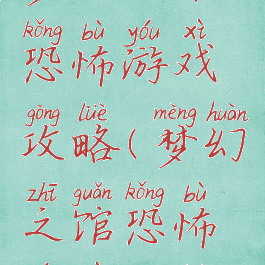 kǒng bù yóu xì
恐怖游戏
gōng lüè mèng huàn
攻略(梦幻
zhī guǎn kǒng bù
之馆恐怖